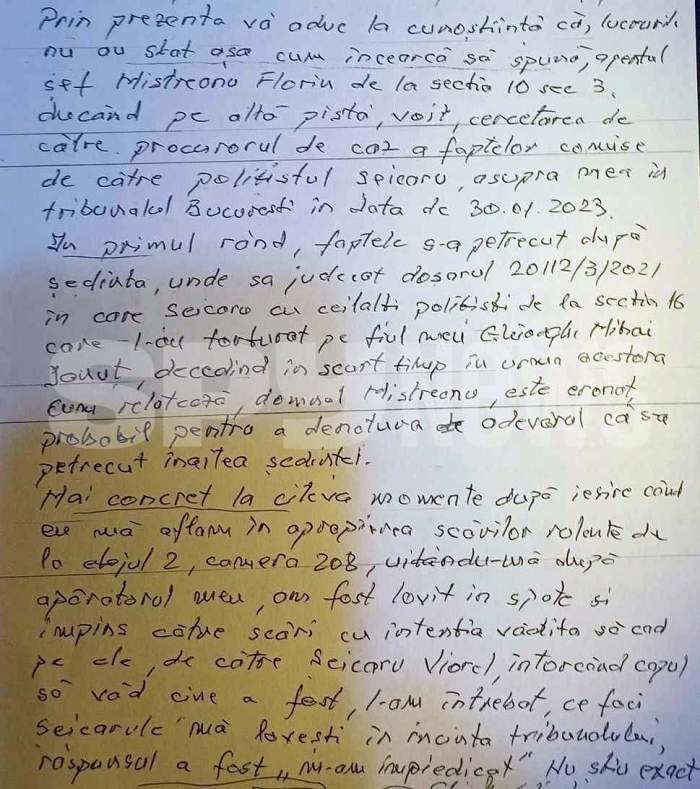 Prin prezenta vă aduc la cunostiintă că, lucrurile
nu au stat așa cum încearcă să spună, agentul
șef Mistreanu Florin de la sectia 10 sec 3,
ducând pe altă pistă, voit, cercetarea de
către procurorul de caz a faptelor comise
de către politistul Seicaru, asupra mea in
tribunalul Bucuresti în data de 30.01.2023.
In primul rând, faptele s-a petrecut după
ședinta, unde sa judecat dosarul 20112/3/2021
in care Seicaru cu ceilalti politisti de la sectia 16
care l-au torturat pe fiul meu Gheorghe Mihai
Ionut, decedând in scurt timp în urma acestora
cum relatează, domnul Mistreanu, este eronat,
probabil pentru a denatura adevarul că sa
petrecut înaitea ședintei.
Mai concret la citeva momente după iesire când
eu mă aflam în apropierea scărilor rulante de
la etajul 2, camera 208, uitându-mă după
apărătorul meu, am fost lovit in spate si
împins către scări cu intentia vădita să cad
pe ele, de către Seicaru Viorel, intorcând capul
să văd cine a fost, l-am întrebat, ce faci
Seicarule mă lovești în incinta tribunalului,
răspunsul a fost „m-am împiedicat" Nu știu exact
SPYNEWS